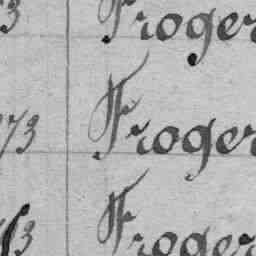 3 Froger
73 Froger
73 Froger